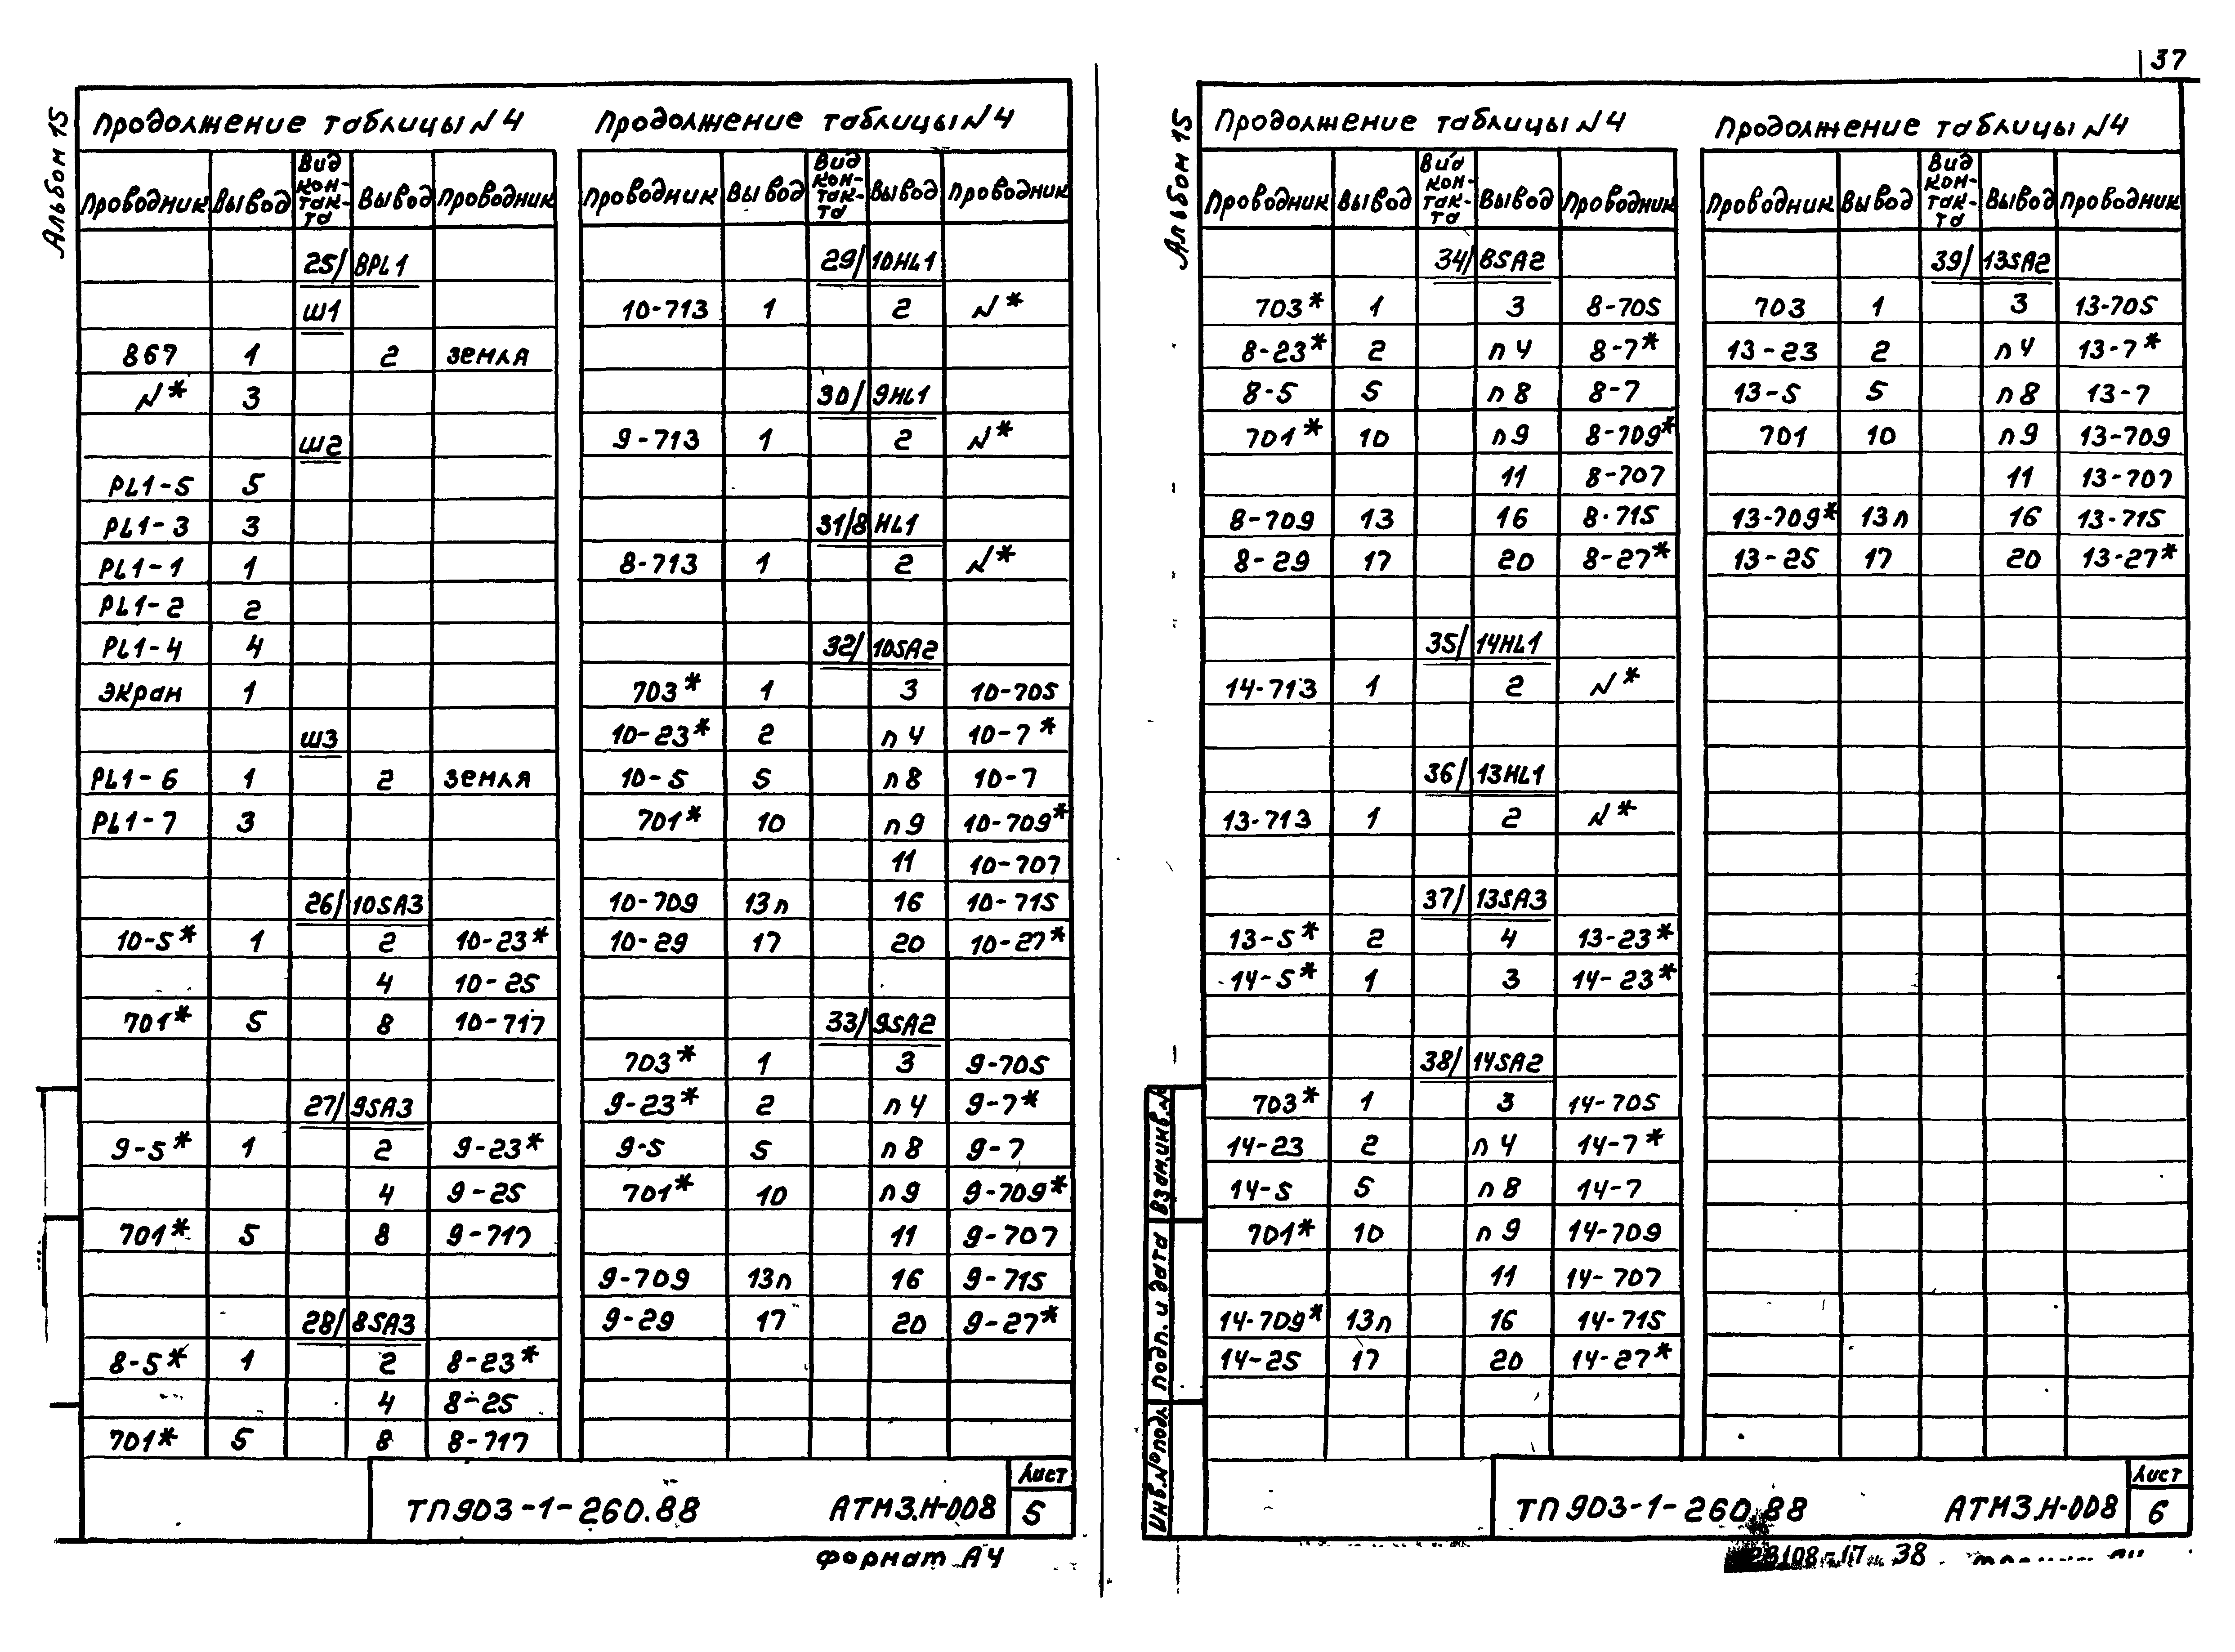 37
Альбом 15
Продолжение таблицы N 4
Проводник Вывод Вид кон-так-та Вывод Проводник
25/ BPL1
Ш1
867 1 2 земля
N* 3
Ш2
PL1-5 5
PL1-3 3
PL1-1 1
PL1-2 2
PL1-4 4
экран 1
Ш3
PL1-6 1 2 земля
PL1-7 3
26/ 10SA3
10-5* 1 2 10-23*
4 10-25
701* 5 8 10-717
27/ 9SA3
9-5* 1 2 9-23*
4 9-25
701* 5 8 9-717
28/ 8SA3
8-5* 1 2 8-23*
4 8-25
701* 5 8 8-717
Продолжение таблицы N 4
Проводник Вывод Вид кон-так-та Вывод Проводник
29/ 10HL1
10-713 1 2 N*
30/ 9HL1
9-713 1 2 N*
31/ 8HL1
8-713 1 2 N*
32/ 10SA2
703* 1 3 10-705
10-23* 2 п4 10-7*
10-5 5 п8 10-7
701* 10 п9 10-709*
11 10-707
10-709 13п 16 10-715
10-29 17 20 10-27*
33/ 9SA2
703* 1 3 9-705
9-23* 2 п4 9-7*
9-5 5 п8 9-7
701* 10 п9 9-709*
11 9-707
9-709 13п 16 9-715
9-29 17 20 9-27*
ТП 903-1-260.88 АТМ3.Н-008
Лист
5
формат А4
Альбом 15
Продолжение таблицы N 4
Проводник Вывод Вид кон-так-та Вывод Проводник
34/ 8SA2
703* 1 3 8-705
8-23* 2 п4 8-7*
8-5 5 п8 8-7
701* 10 п9 8-709*
11 8-707
8-709 13 16 8-715
8-29 17 20 8-27*
35/ 14HL1
14-713 1 2 N*
36/ 13HL1
13-713 1 2 N*
37/ 13SA3
13-5* 2 4 13-23*
14-5* 1 3 14-23*
38/ 14SA2
703* 1 3 14-705
14-23 2 п4 14-7*
14-5 5 п8 14-7
701* 10 п9 14-709
11 14-707
14-709* 13п 16 14-715
14-25 17 20 14-27*
Продолжение таблицы N 4
Проводник Вывод Вид кон-так-та Вывод Проводник
39/ 13SA2
703 1 3 13-705
13-23 2 п4 13-7*
13-5 5 п8 13-7
701 10 п9 13-709
11 13-707
13-709* 13п 16 13-715
13-25 17 20 13-27*
Инв.№подл. Подп. и дата Взам.инв.№
ТП 903-1-260.88 АТМ3.Н-008
Лист
6
23108-17 38